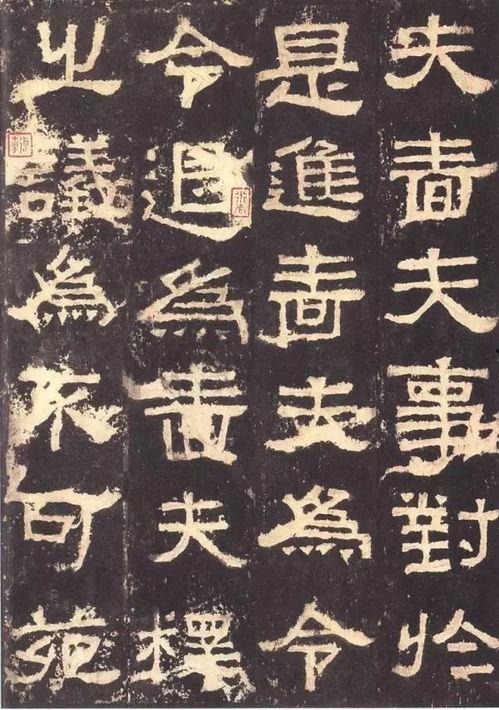 夫嗇夫事對於
是進嗇夫為令
令退為嗇夫釋
之議為不可苑